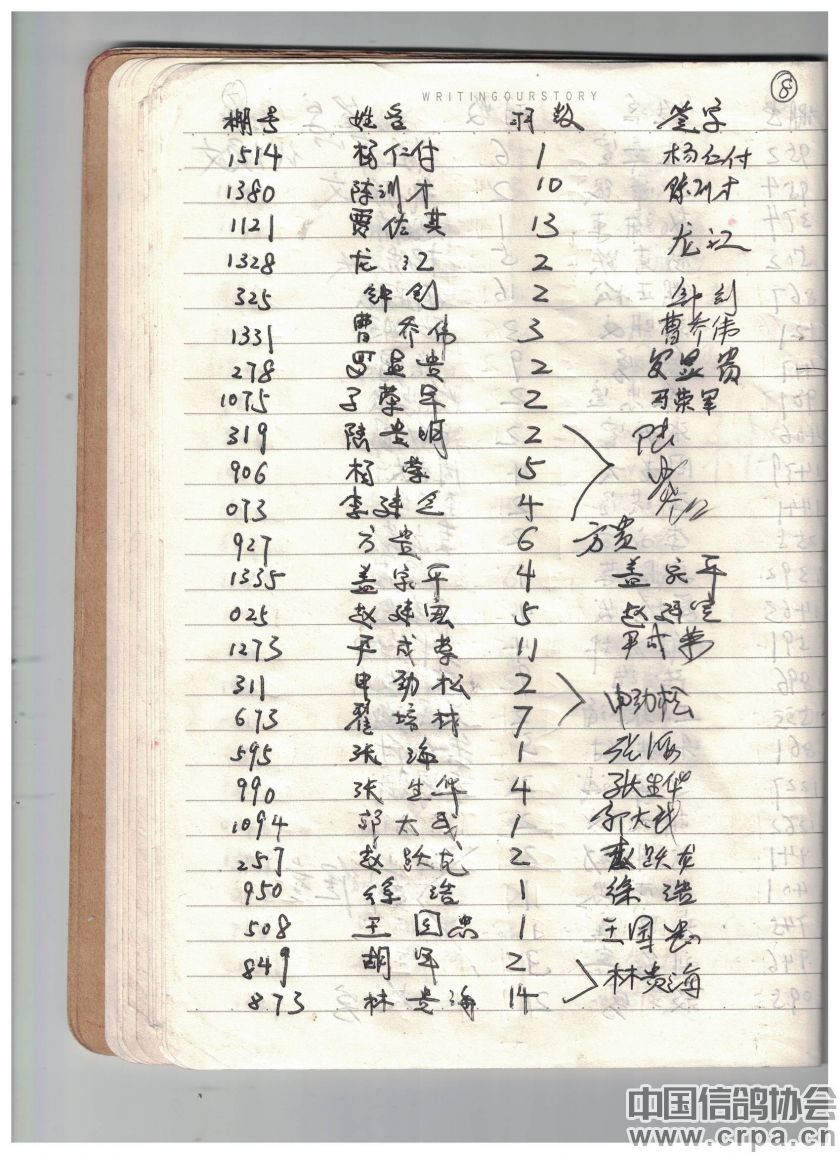 WRITINGOURSTORY ⑧
棚号 姓名 羽数 签字
1514 杨仁付 1 杨仁付
1380 陈训才 10 陈训才
1121 贾佐其 13 龙江
1328 龙江 2
325 钟剑 2 钟剑
1331 曹乔伟 3 曹乔伟
278 罗显贵 2 罗显贵
1075 荣军 2 荣军
319 陆贵明 2 陆
906 杨荣 5
073 李建 4
927 方贵 6 方贵
1335 盖家平 4 盖家平
025 赵建宝 5 赵建宝
1273 成荣 11 成荣
311 申劲松 2 申劲松
673 翟培林 7
595 张海 1 张海
990 张生华 4 张生华
1094 郭太武 1 郭大武
257 赵跃龙 2 赵跃龙
950 徐浩 1 徐浩
508 王国忠 1 王国忠
849 胡军 2 林贵海
873 林贵海 14
中国信鸽协会
www.crpa.cn